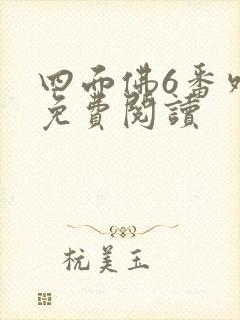 四而佛6番
免費閱讀
杭美玉